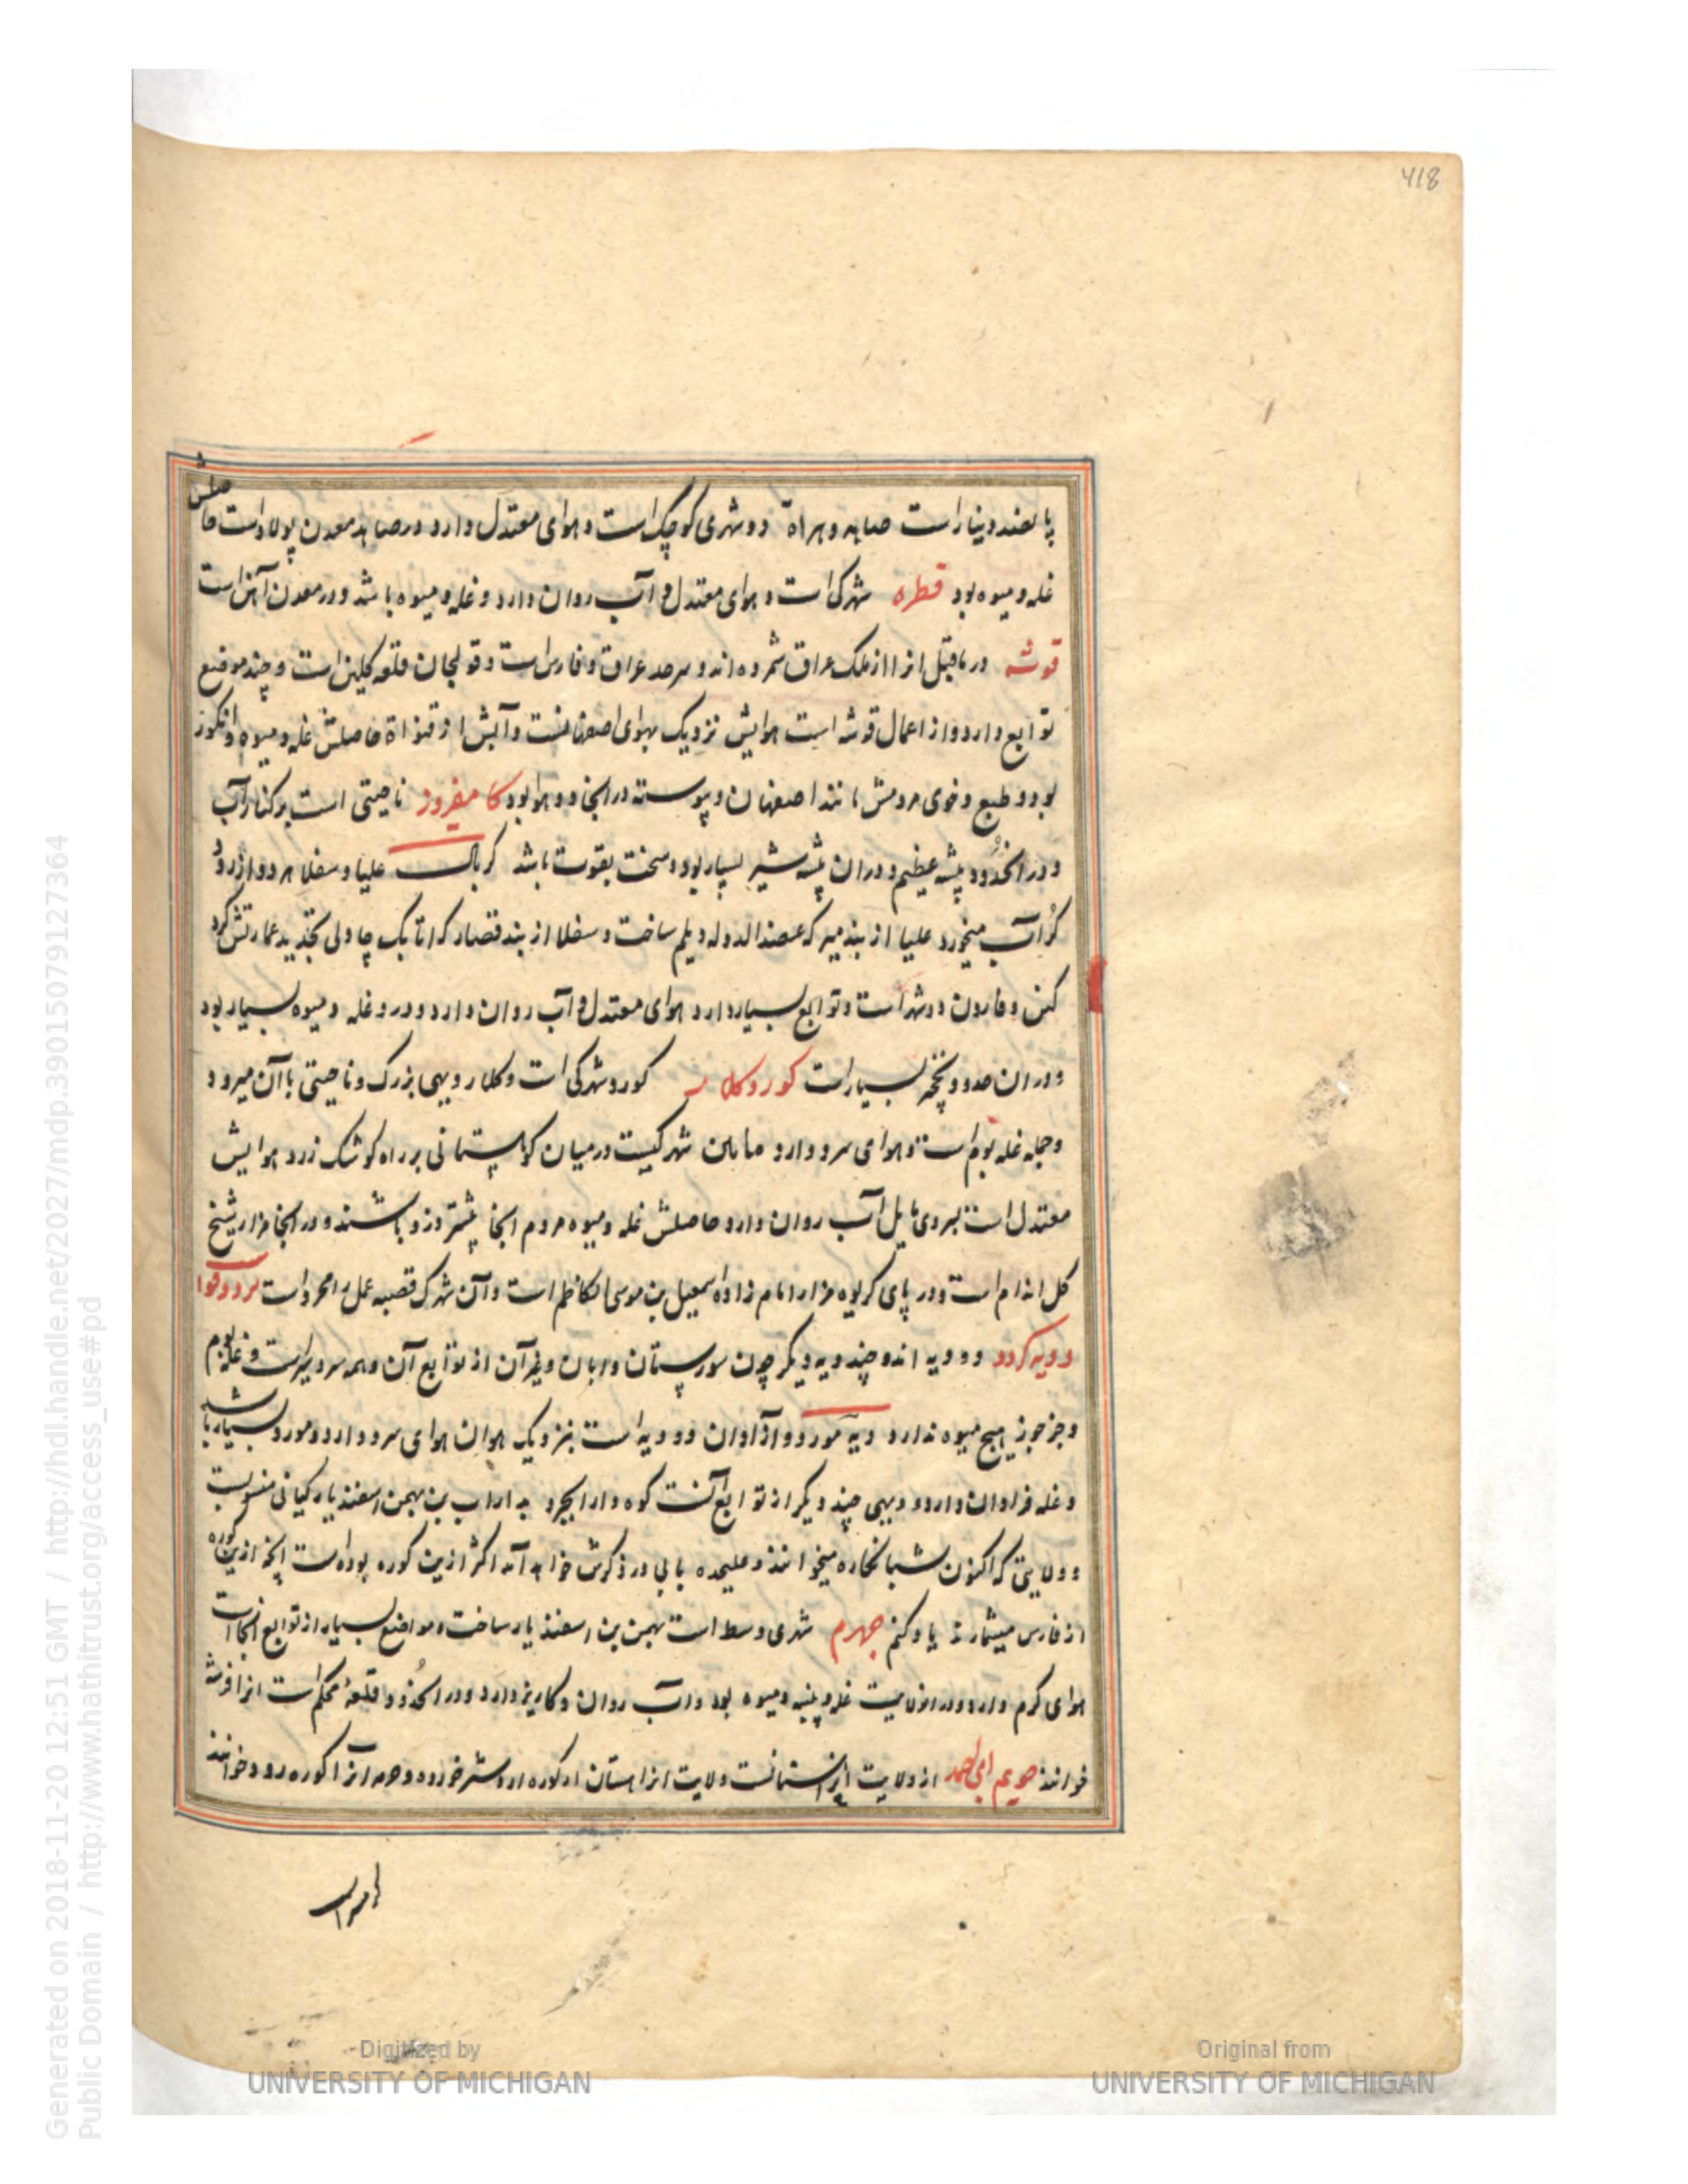 418
پانصد دینار است صاهه و هراة دو شهری کوچک است و هوای معتدل دارد و در صاهه معدن پولاد است حاصلش
غله و میوه بود قطره شهرکی است و هوای معتدل و آب روان دارد و غله و میوه باشد و در معدن آهن است
قوشه در ماقبل انرا از ملک عراق شمرده اند و سرحد عراق و فارس است و قولنجان قلعه گلین است و چند موضع
توابع دارد و از اعمال قوشه است هوایش نزدیک بهوای اصفهانست و آبش از قنواة حاصلش غله و میوه و انکور
بود و طبع و خوی مردمش مانند اصفهان و پیوسته در انجا دو هوا بود کامفیروز ناحیتی است بر کنار آب
و در انحدود بیشه عظیم و دران بیشه شیر بسیار بود و سخت بقوت باشد کربال علیا و سفلا هر دو از رود
کر آب میخورد علیا از بند میر که عضد الدوله دیلم ساخت و سفلا از بند قصار که اتابک چاولی تجدید عمارتش کرد
کمن و فارون دو شهر است و توابع بسیار دارد هوای معتدل و آب روان دارد و درو غله و میوه بسیار بود
و دران حدود نخجیر بسیار است کور و کلار کورد شهرکی است و کلار دیهی بزرک و ناحیتی با آن میرود
و جمله غله بوم است و هوای سرد دارد مابین شهرکیست در میان کوهستانی بر راه کوشک زرد هوایش
معتدل است بسردی مایل آب روان دارد حاصلش غله و میوه مردم انجا بیشتر دزد باشند و در انجا مزار شیخ
کل اندام است و در پای کریوه مزار امام زاده اسمعیل بن موسی الکاظم است و آن شهرک قصبه عمل رامجرد است سردو قوا
و دیه کردو دو دیه اند و چند دیه دیکر چون سورستان و ابان و غیر آن از توابع آن و همه سردسیر است و غله بوم
و جز جوز هیچ میوه ندارد دیه مورد و آذاوان دو دیه است بنزدیک بوان هوای سرد دارد و مورد بسیار باشد
و غله فراوان دارد و دیهی چند دیکر از توابع آنست کوره دارابجرد به داراب بن بهمن اسفندیار کیانی منسوب است
و ولایتی که اکنون شبانکاره میخوانند و علیحده بابی در ذکرش خواهد آمد اکثر ازین کوره بوده است اینجا ازین کوره
از فارس میشمارند یاد کنم جهرم شهری وسط است بهمن بن اسفندیار ساخت و مواضع بسیار از توابع انجاست
هوای کرم دارد و در انولایت غله و پنبه و میوه بود و آب روان و کاریز دارد و در انحدود قلعهٔ محکم است انرا خرشه
خوانند جویم ابی احمد از ولایت ایراهستانست ولایت ایراهستان از کوره اردشیر خوره و هم انرا کوره رود خوانند
Generated on 2018-11-20 12:51 GMT / http://hdl.handle.net/2027/mdp.39015079127364
Public Domain / http://www.hathitrust.org/access_use#pd
Digitized by
UNIVERSITY OF MICHIGAN
Original from
UNIVERSITY OF MICHIGAN